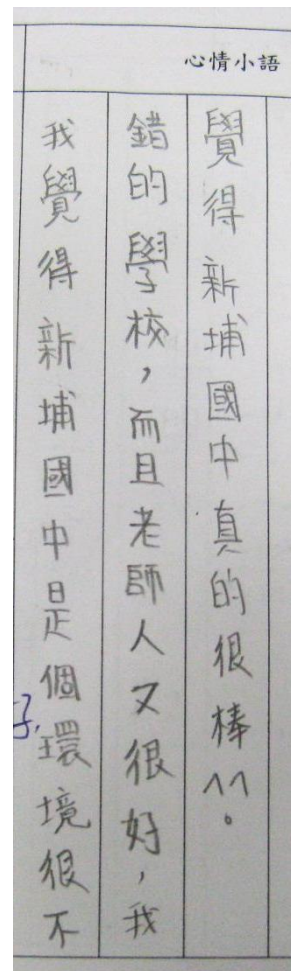 心情小語
我覺得新埔國中是個環境很不
錯的學校，而且老師人又很好，我
覺得新埔國中真的很棒^^。